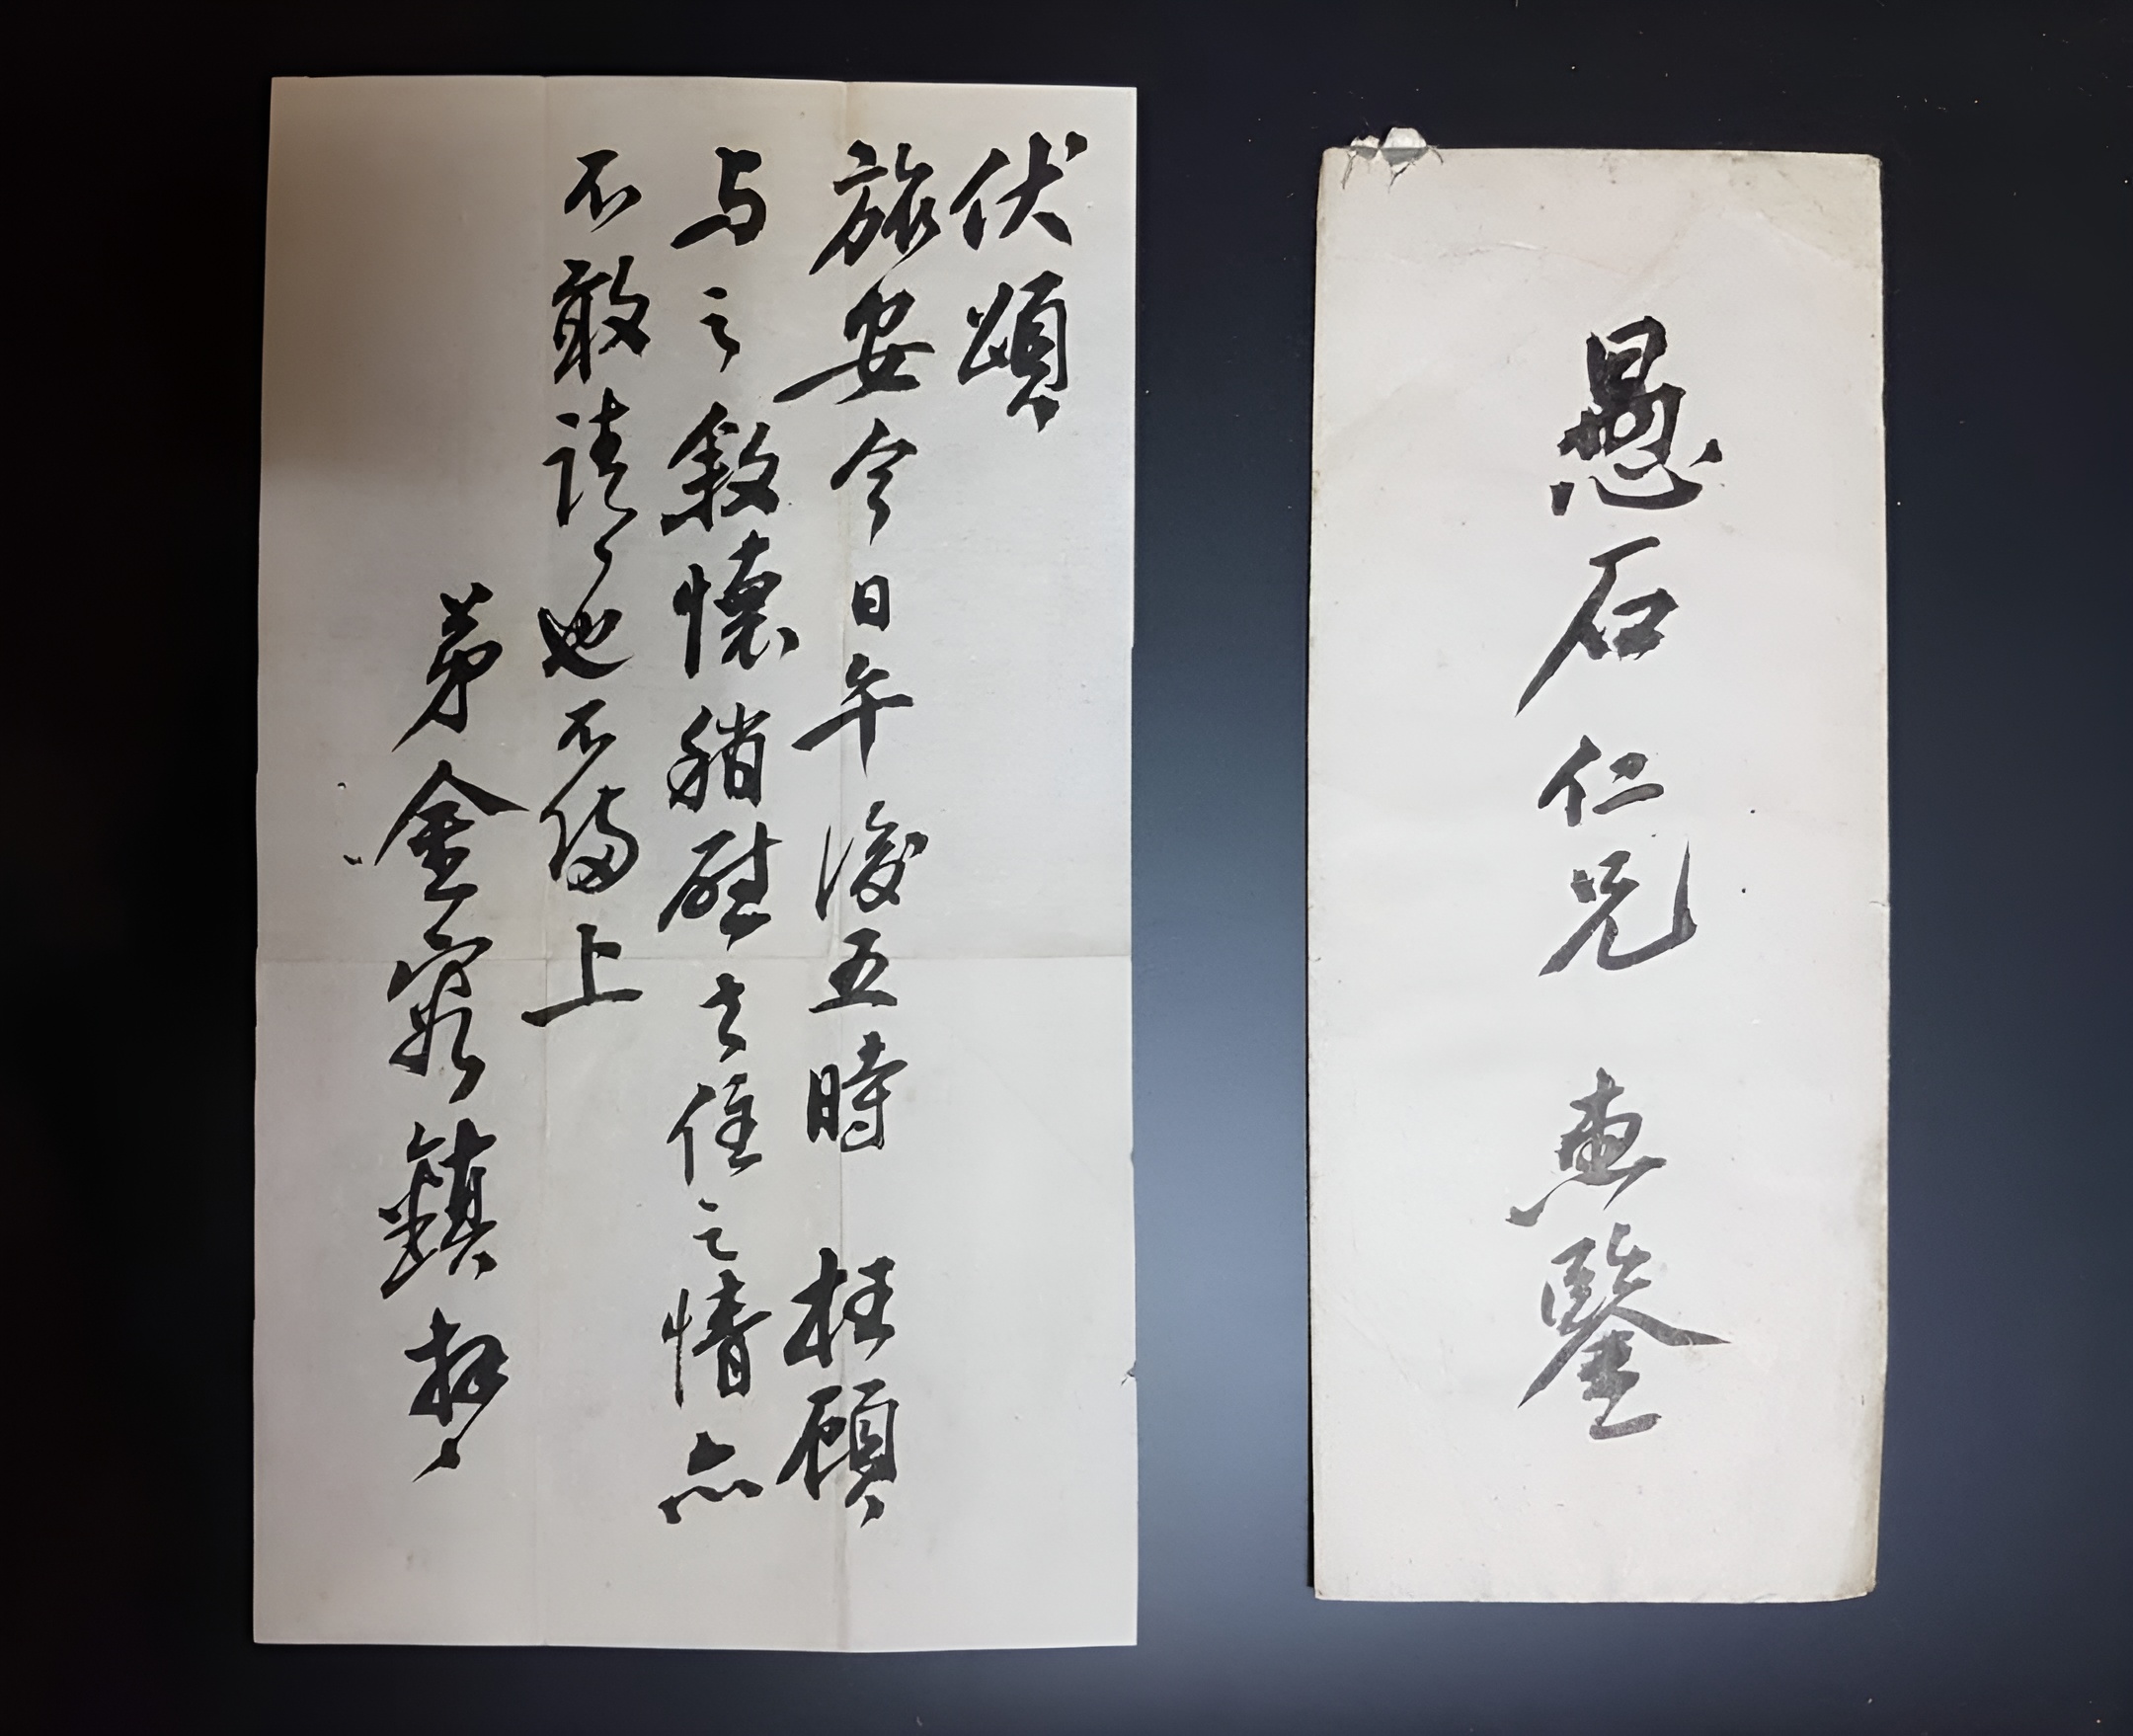 愚石仁兄 惠鑒
伏頌
旅安今日午後五時 枉顧
与之敘懷稍慰去住之情亦
不敢請々也不備上
弟金容鎭拜